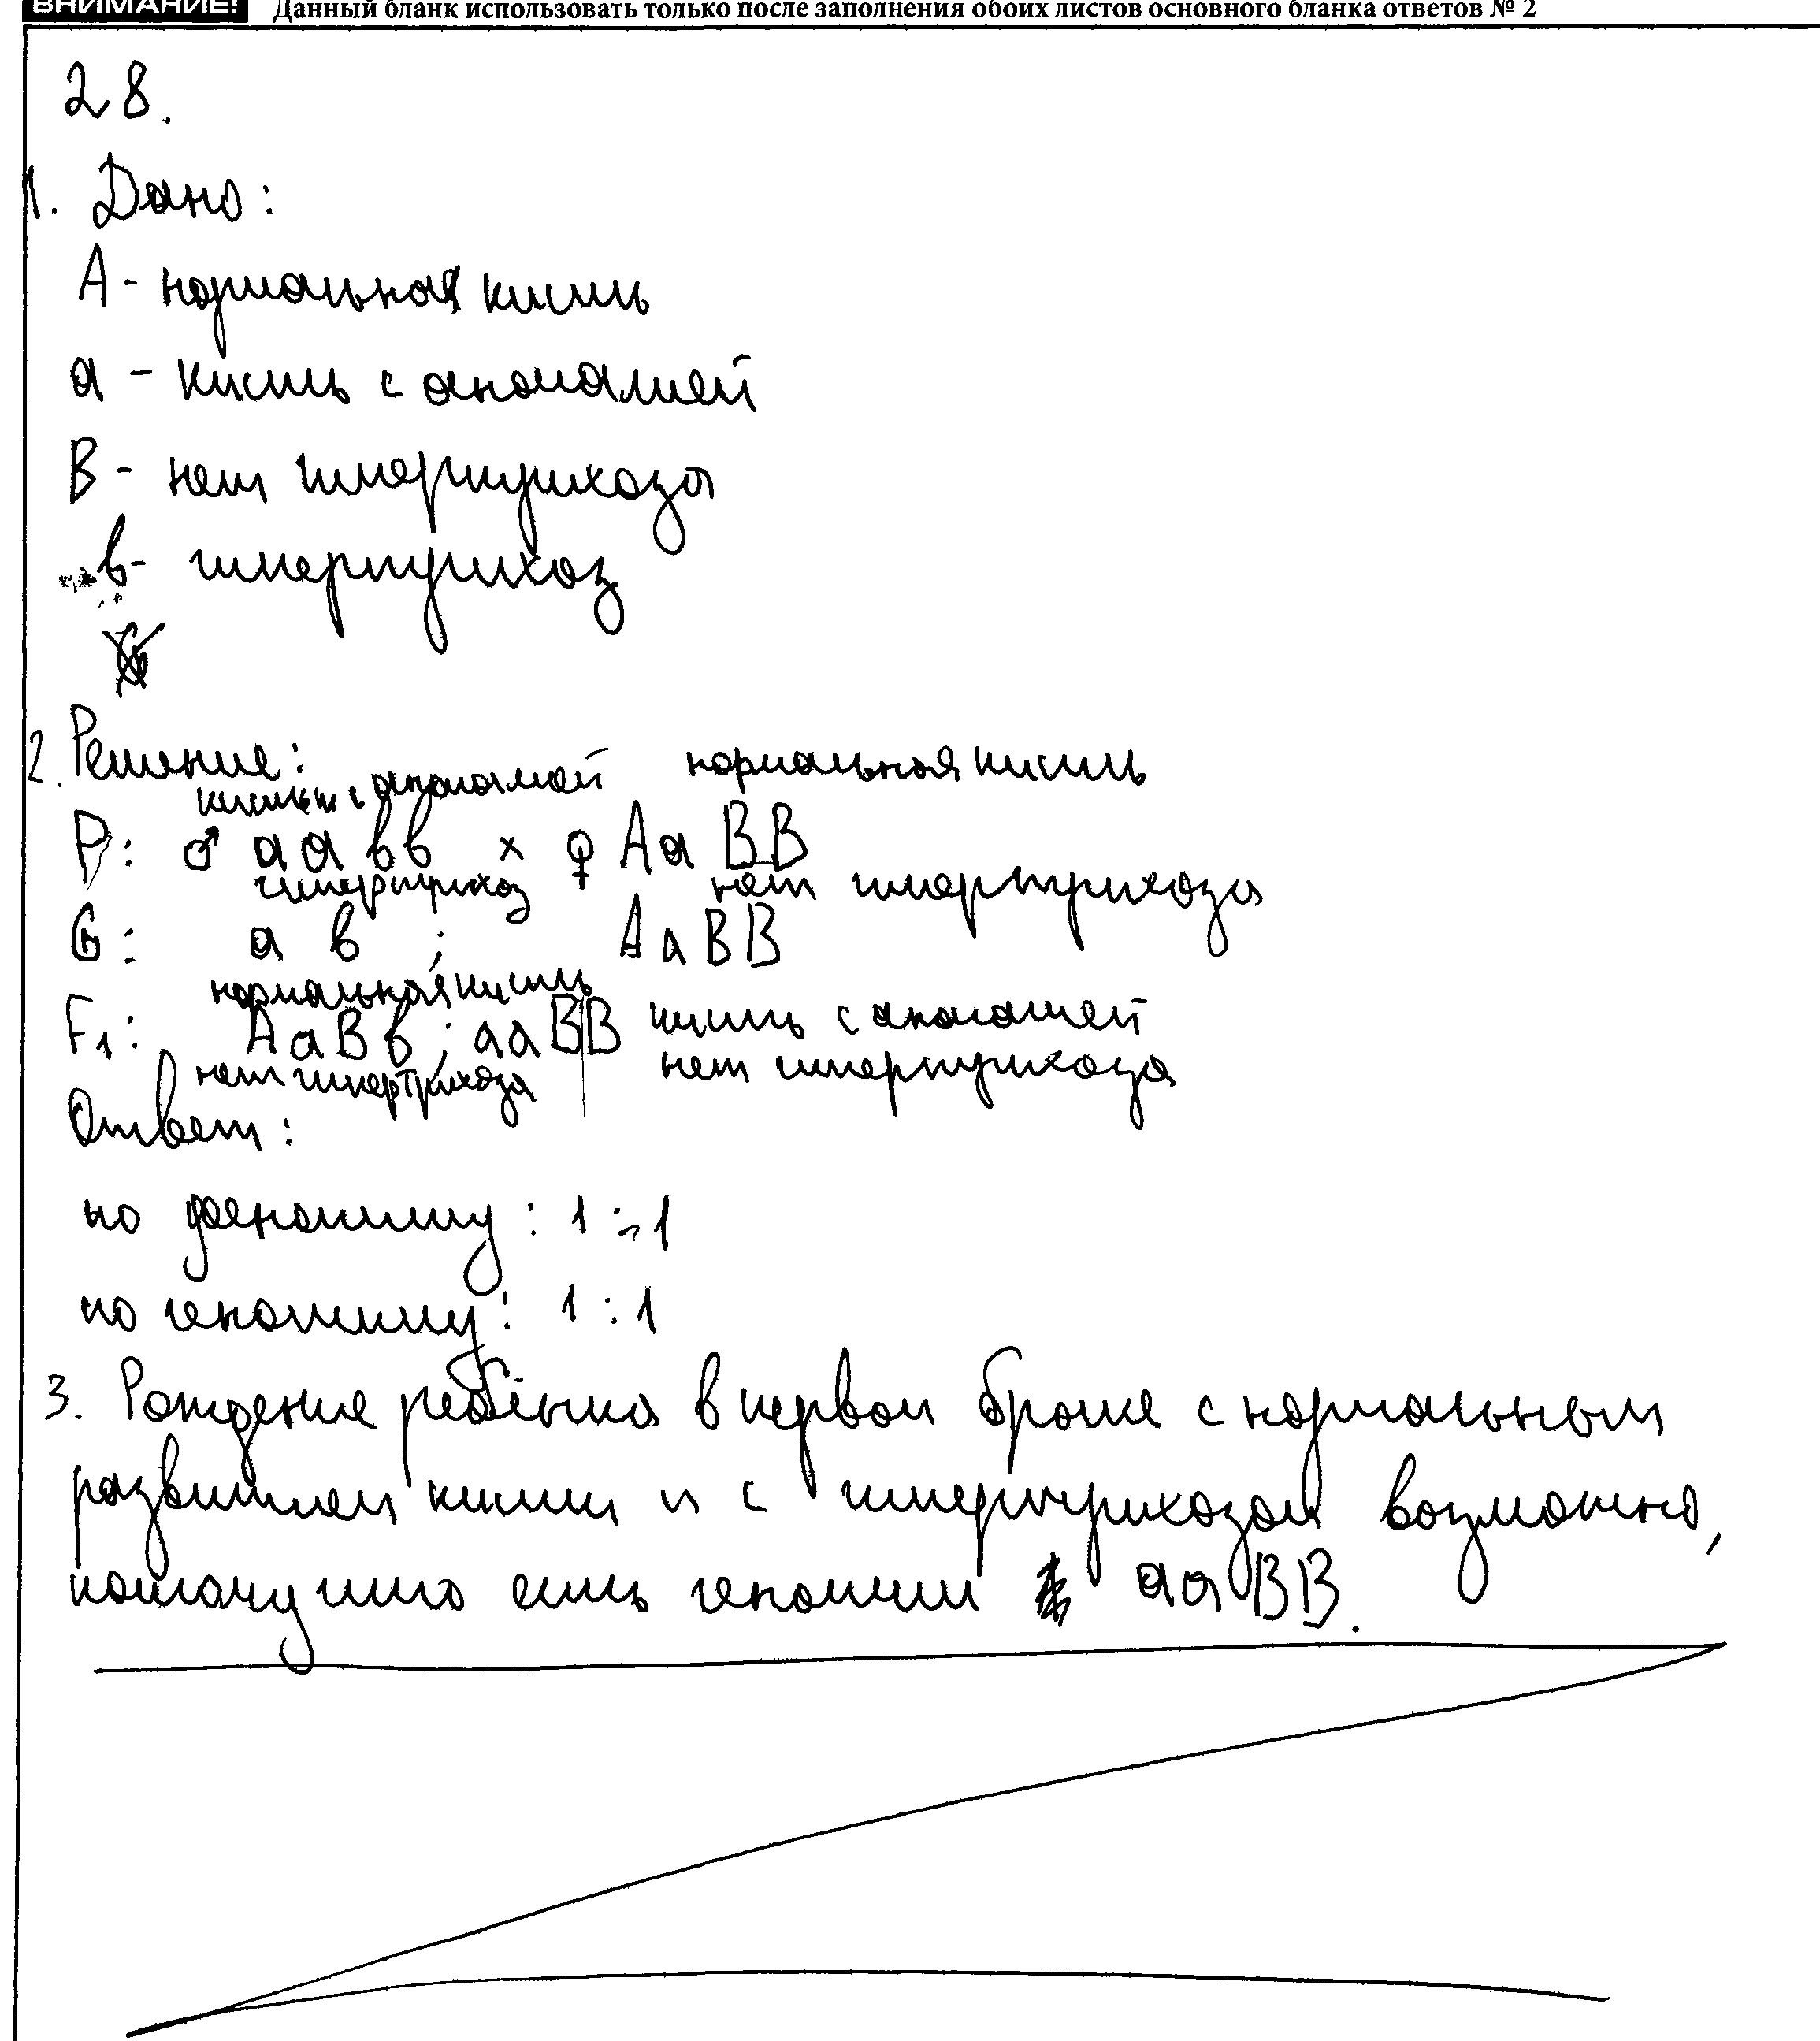 ВНИМАНИЕ! Данный бланк использовать только после заполнения обоих листов основного бланка ответов № 2
28.
1. Дано:
А - нормальная кисть
а - кисть с аномалией
В - нет гипертрихоза
в - гипертрихоз
2. Решение:
кисть с аномалией нормальная кисть
Р: ♂ аавв х ♀ АаВВ
гипертрихоз нет гипертрихоза
G: а в ; АаВВ
нормальная кисть
F1: АаВв ; ааВВ кисть с аномалией
нет гипертрихоза нет гипертрихоза
Ответ:
по фенотипу: 1:1
по генотипу: 1:1
3. Рождение ребёнка в первом браке с нормальным
развитием кисти и с гипертрихозом возможно,
потому что есть генотип ааВВ.